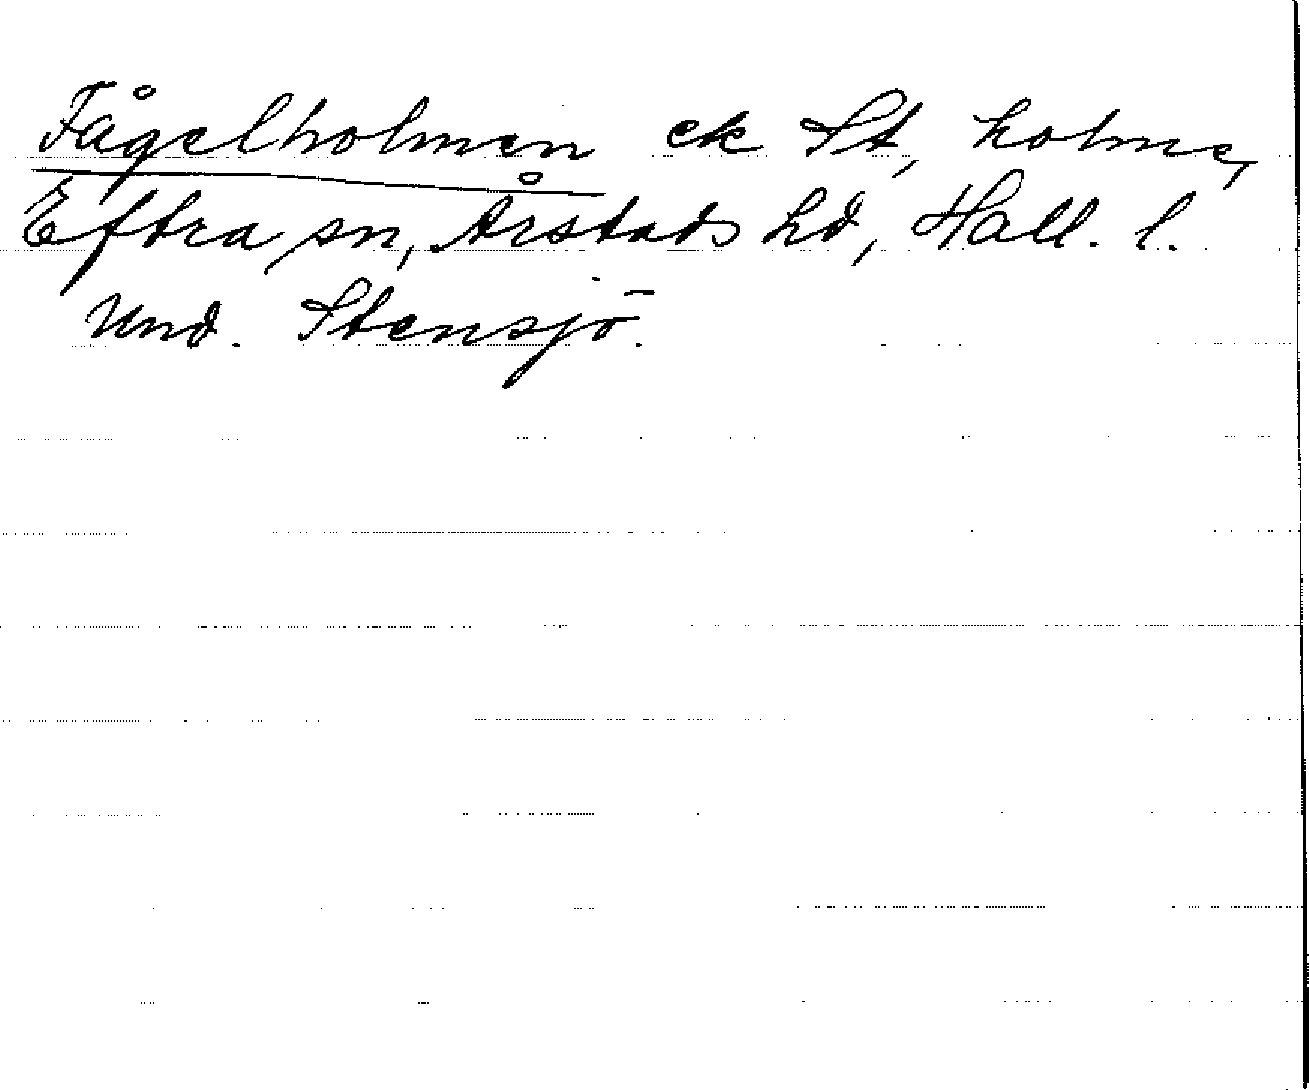 Fågelholmen ek St, holme,
Eftra sn, Årstads hd, Hall. l.
Und. Stensjö.